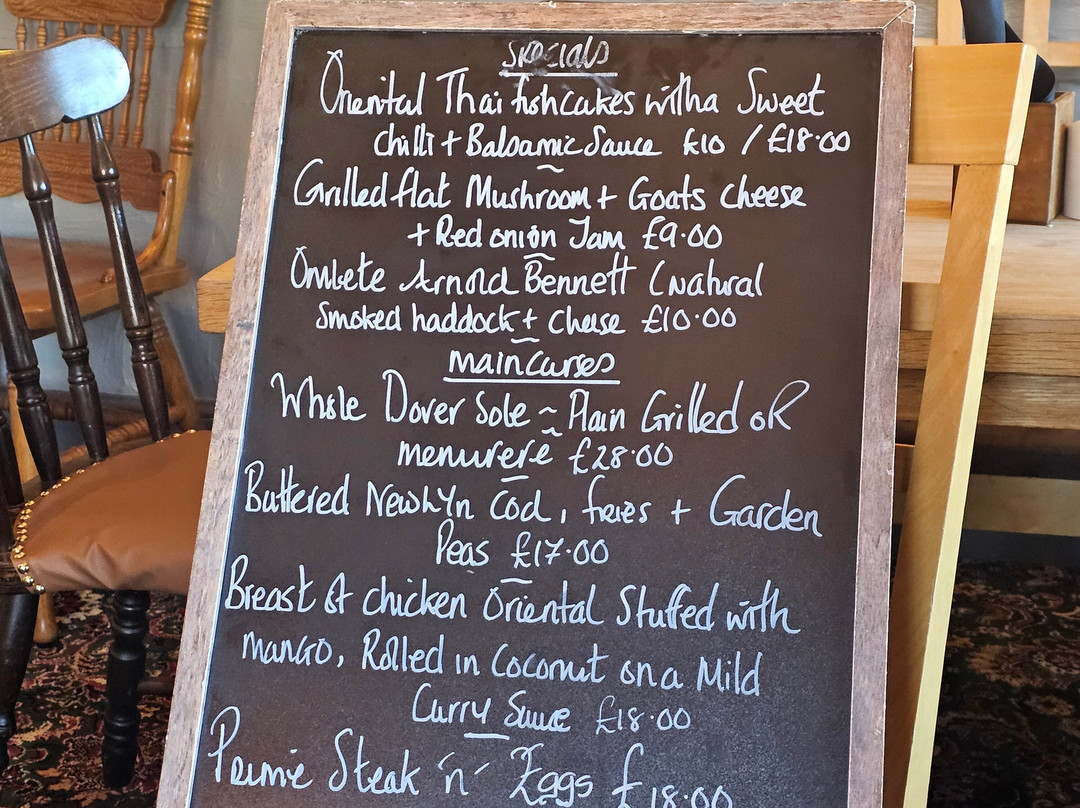 Specials
Oriental Thai fishcakes with a Sweet
chilli + Balsamic Sauce £10 / £18.00
~
Grilled flat Mushroom + Goats cheese
+ Red onion Jam £9.00
~
Omlete Arnold Bennett (Natural
Smoked haddock + Cheese £10.00
~
main curses
Whole Dover Sole ~ Plain Grilled oR
menurere £28.00
Battered Newlyn Cod, fries + Garden
Peas £17.00
Breast of chicken Oriental Stuffed with
mango, Rolled in Coconut on a Mild
Curry Sauce £18.00
Prime Steak 'n' Eggs £18.00